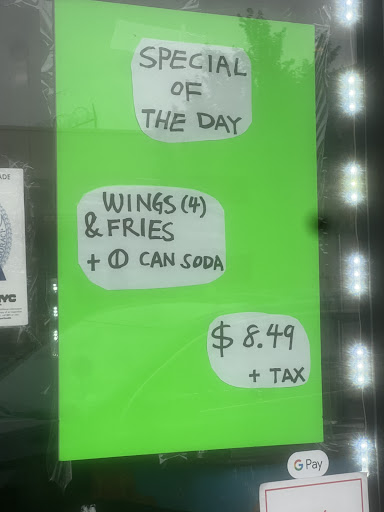 SPECIAL
OF
THE DAY
WINGS (4)
& FRIES
+ ① CAN SODA
$ 8.49
+ TAX
G Pay
NYC